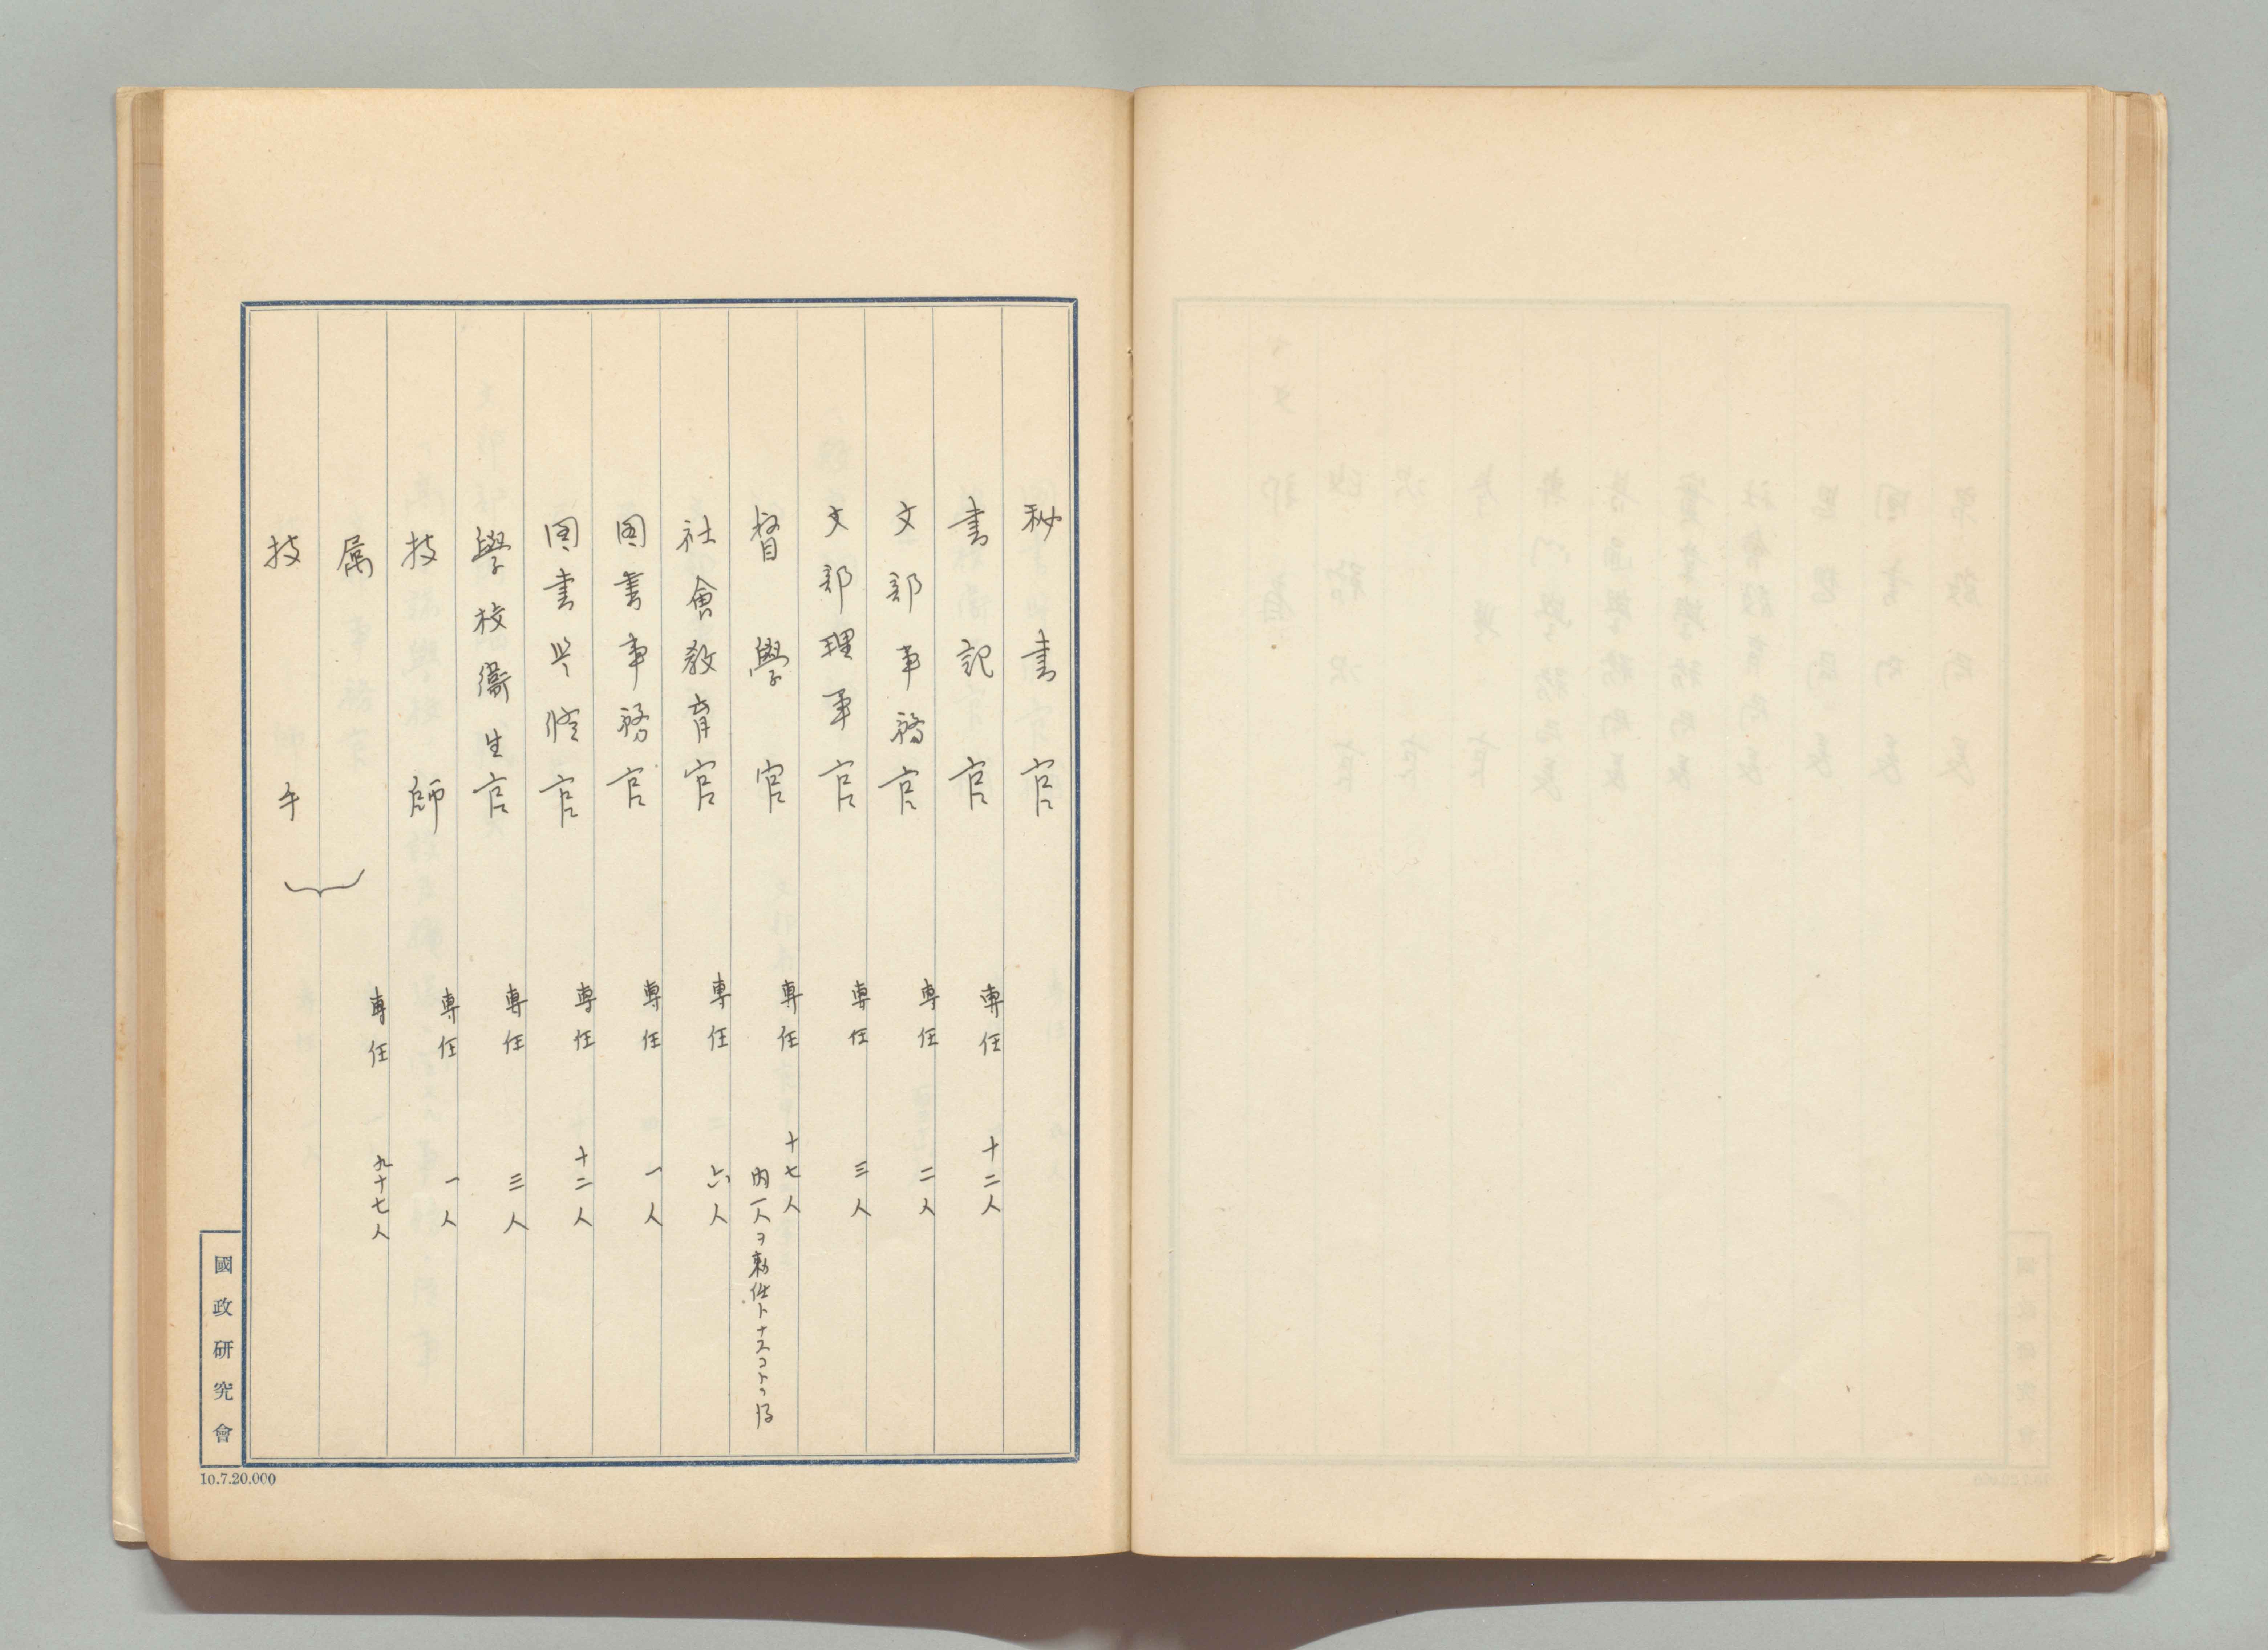 秘書官
書記官 専任 十二人
文部事務官 専任 二人
文部理事官 専任 三人
督學官 専任 十七人
内一人ヲ勅任トナスコトヲ得
社會教育官 専任 六人
図書事務官 専任 一人
図書監修官 専任 十二人
學校衛生官 専任 三人
技師 専任 一人
属 専任 九十七人
技手
國政研究會
10.7.20.000